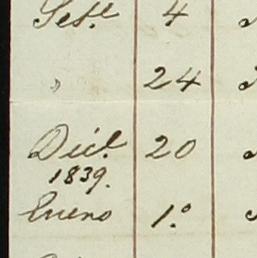 Set.e 4
" 24
Dici.e 20
1839.
Enero 1.º